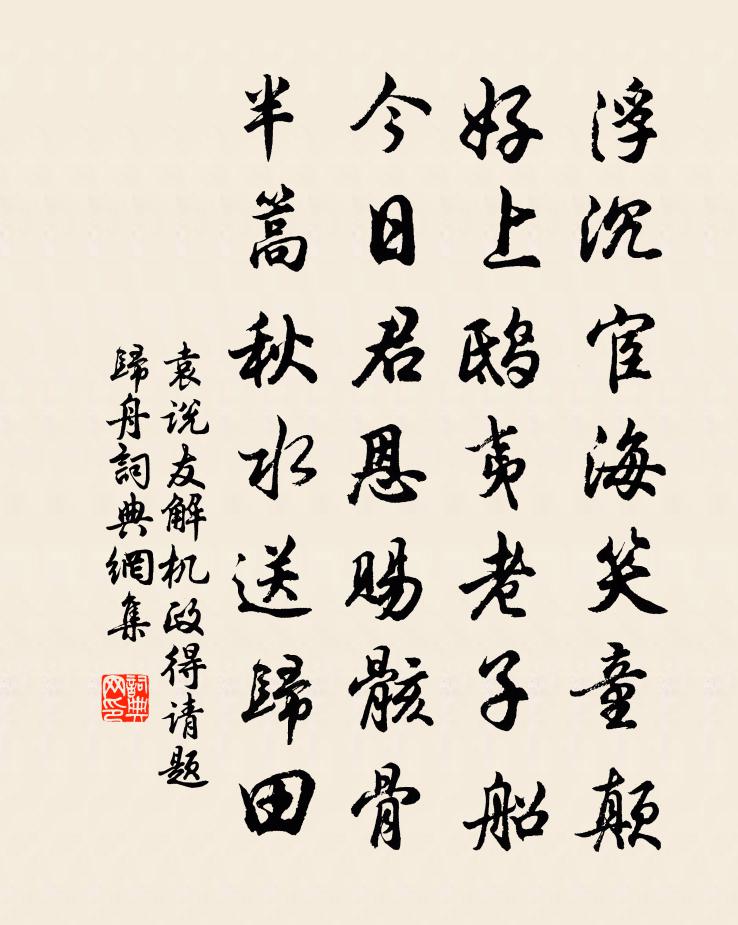 浮沉宦海笑童颠
好上鸱夷老子船
今日君恩賜骸骨
半篙秋水送歸田
袁说友解机政得请题
歸舟詞典網集
詞典网印